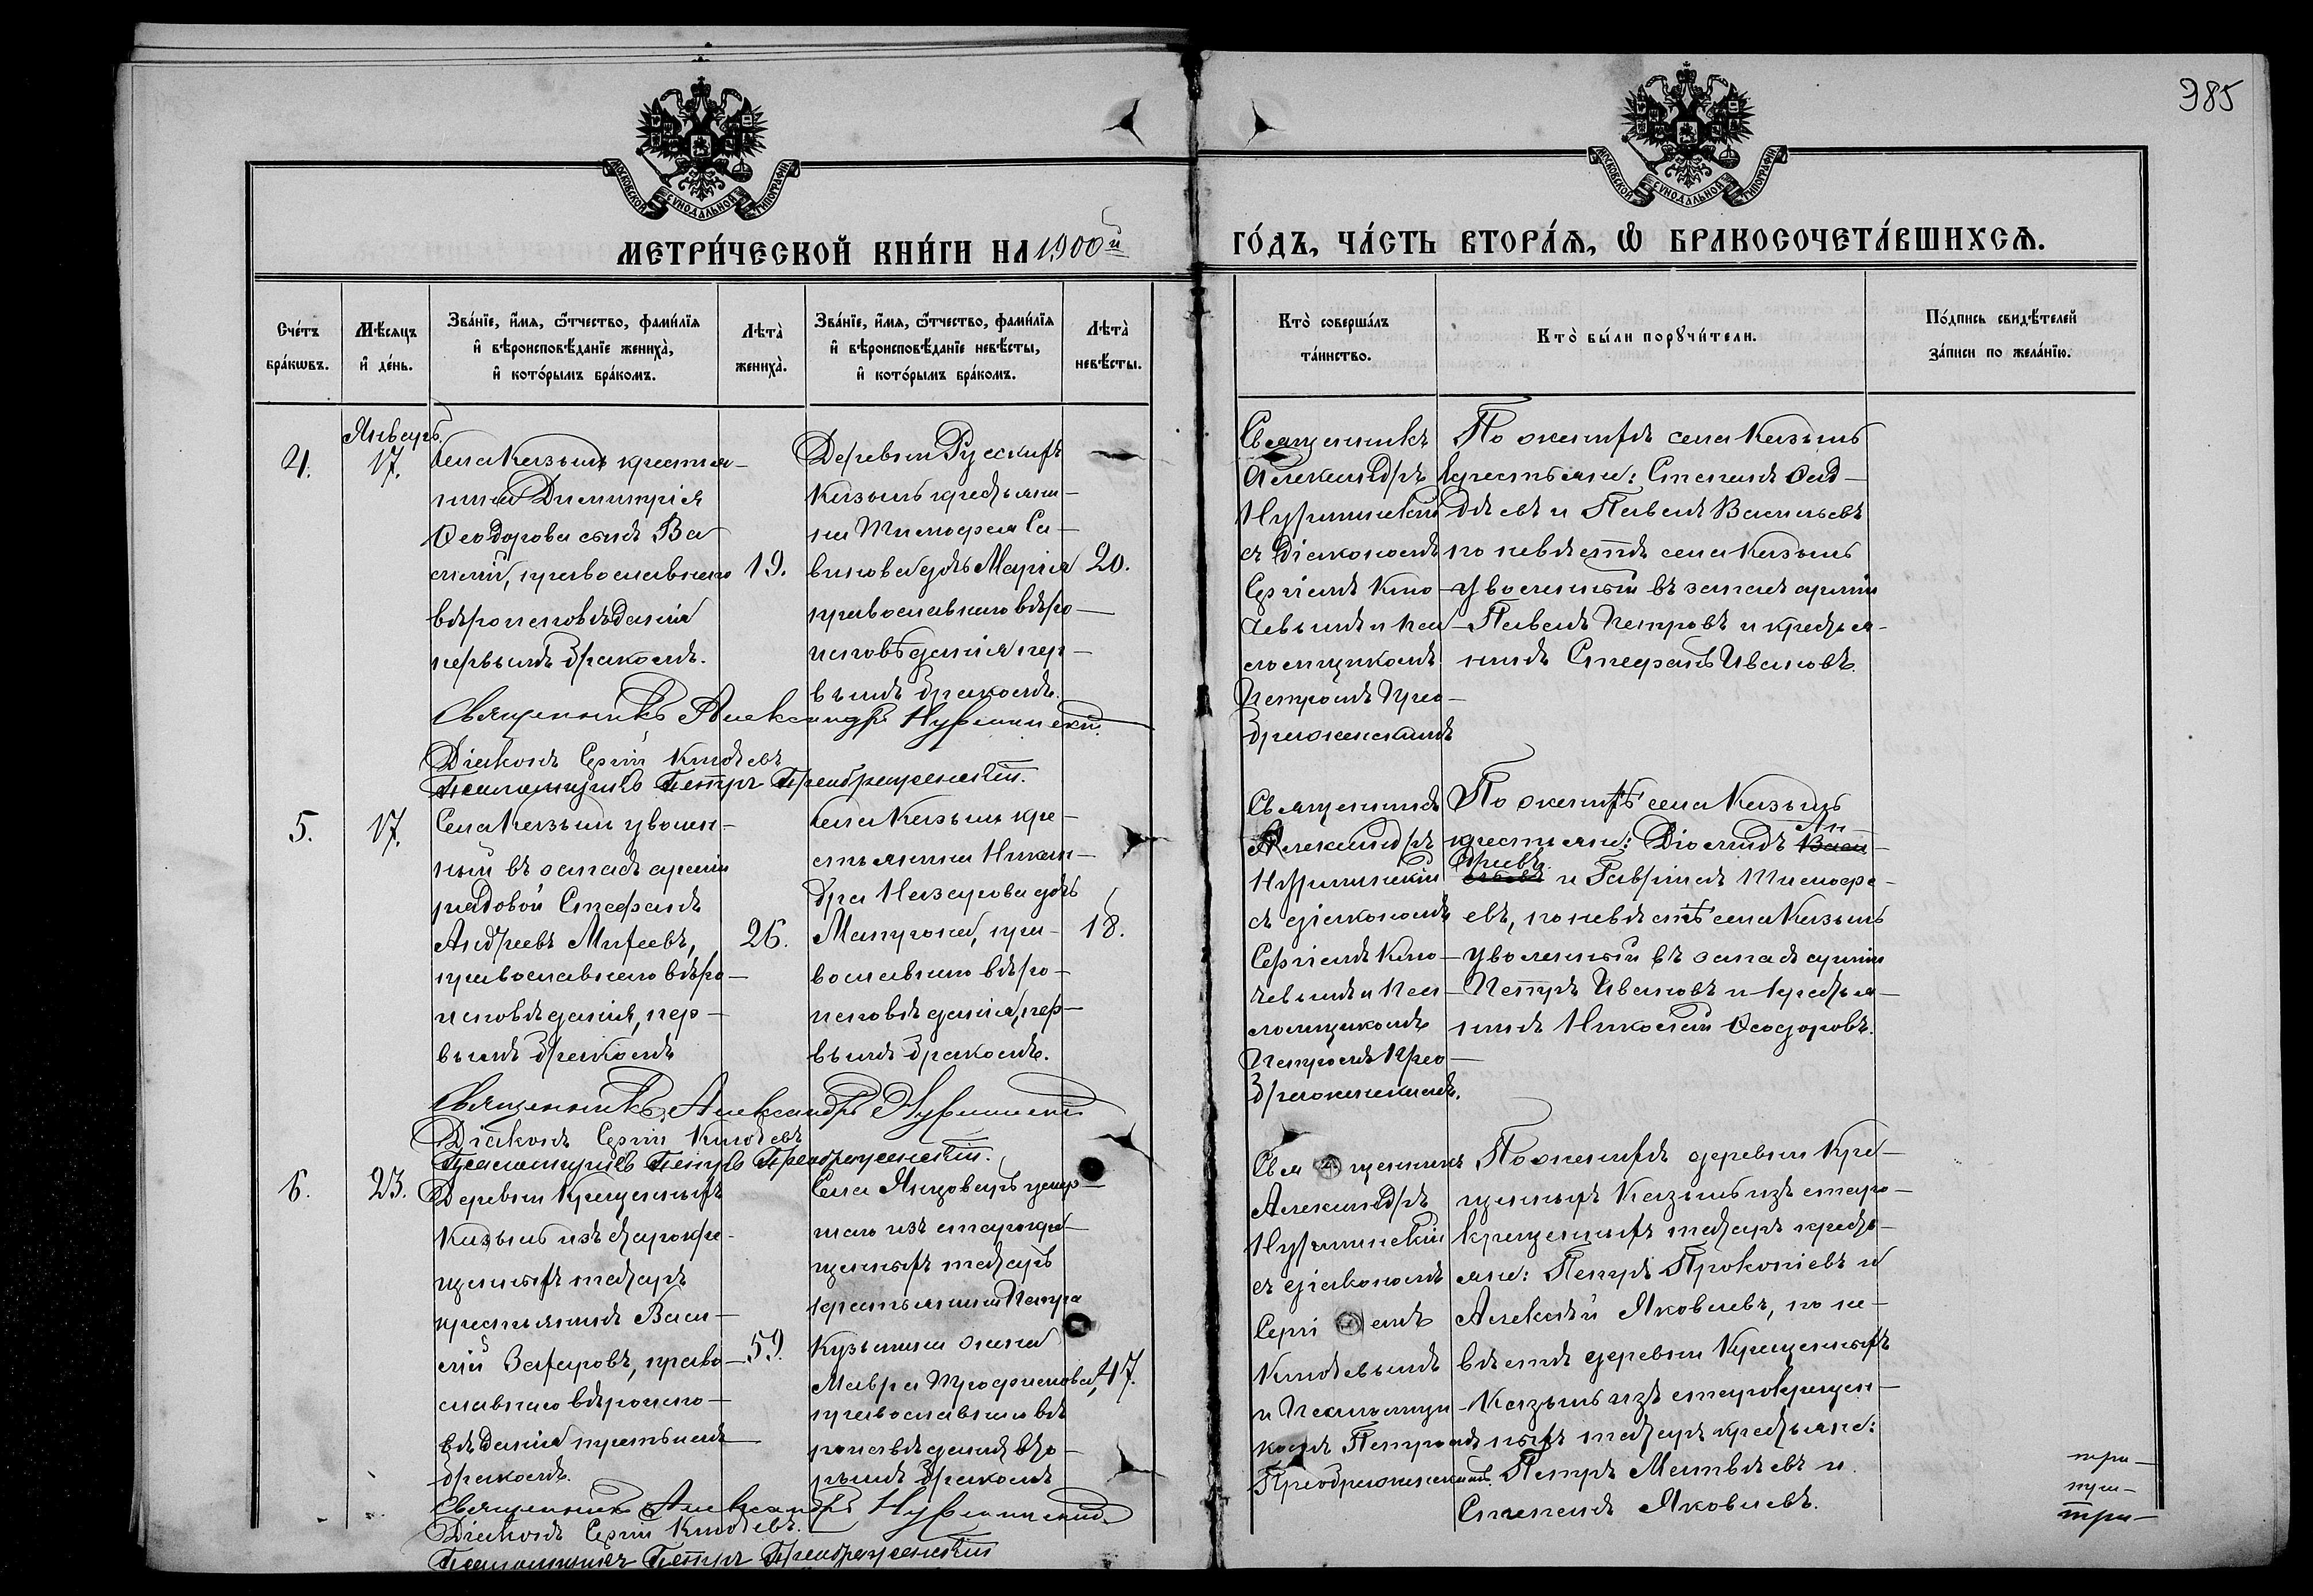 985
МОСКОВСКОЙ СѴНОДАЛЬНОЙ ТИПОГРАФІИ
МОСКОВСКОЙ СѴНОДАЛЬНОЙ ТИПОГРАФІИ
МЕТРИ́ЧЕСКОЙ КНИ́ГИ НА 1900й
ГО́ДЪ, ЧА́СТЬ ВТОРА́Ѧ, Ѡ БРАКОСОЧЕТА́ВШИХСѦ.
Сче́тъ
бра́кѡвъ.
Мѣ́сяцъ
и҆ де́нь.
Зва́нїе, и҆́мя, ѻ҆́тчество, фами́лїя
и҆ вѣроисповѣ́данїе жениха̀,
и҆ кото́рымъ бра́комъ.
Лѣта̀
жениха̀.
Зва́нїе, и҆́мя, ѻ҆́тчество, фами́лїя
и҆ вѣроисповѣ́данїе невѣ́сты,
и҆ кото́рымъ бра́комъ.
Лѣта̀
невѣ́сты.
Кто̀ соверша́лъ
та́инство.
Кто̀ бы́ли порꙋчи́тели.
По́дпись свидѣ́телей
за́писи по жела́нїю.
4.
Январь.
17.
Села Казыль крестья-
нина Димитрія
Ѳеодорова сынъ Ва
силій, православнаго
вѣроисповѣданія
первымъ бракомъ.
19.
Деревни Русскихъ
Казыль крестьяни-
на Тимофея Са-
винова дочь Марія
православнаго вѣро-
исповѣданія пер-
вымъ бракомъ.
20.
Священникъ
Александръ
съ діакономъ
Сергіемъ Кло-
чевымъ и пса
ломщикомъ
Петромъ Прео-
браженскимъ
По женихѣ села Казыль
крестьяне: Степанъ
и Павелъ Васильевъ
по невѣстѣ села Казыль
уволенный въ запасъ арміи
Павелъ Петровъ и крестья-
нинъ Стефанъ Ивановъ.
Священникъ Александръ
Діаконъ Сергій Клочевъ
Псаломщикъ Петръ Преображенскій.
5.
17.
Села Казыль уволен-
ный въ запасъ арміи
рядовой Стефанъ
Андреевъ
православнаго вѣро-
исповѣданія, пер-
вымъ бракомъ
26.
Села Казыль кре-
стьянина Никан-
дра Назарова дочь
Матрона, пра-
вославнаго вѣро-
исповѣданія, пер-
вымъ бракомъ.
18.
Священникъ
Александръ
съ діакономъ
Сергіемъ Кло-
чевымъ и пса-
ломщикомъ
Петромъ Прео-
браженскимъ.
По женихѣ села Казыль
крестьяне: Діомидъ Ан
дреевъ и Гавріилъ Тимофе-
евъ, по невѣстѣ села Казыль
уволенный въ запасъ арміи
Петръ Ивановъ и крестья-
нинъ Николай Ѳеодоровъ.
Священникъ Александръ
Діаконъ Сергій Клочевъ
Псаломщикъ Петръ Преображенскій.
6.
23.
Деревни Крещеныхъ
Казыль изъ старокре-
щеныхъ татаръ
крестьянинъ Васи-
лій Захаровъ, право-
славнаго вѣроиспо-
вѣданія третьимъ
бракомъ.
59.
Села Янцоваръ умер-
шаго изъ старокре-
щеныхъ татаръ
крестьянина Петра
Кузьмина жена
Мавра Трофимова,
православнаго вѣ
роисповѣданія вто-
рымъ бракомъ
47.
Священникъ
Александръ
съ діакономъ
Сергіемъ
Клочевымъ
и Псаломщи-
комъ Петромъ
Преображенскимъ.
По женихѣ деревни Кре-
щеныхъ Казыль изъ старо-
крещеныхъ татаръ кресть-
яне: Петръ Прокопіевъ и
Алексѣй Яковлевъ, по не-
вѣстѣ деревни Крещеныхъ
Казыль изъ старокрещен-
ныхъ татаръ крестьяне:
Петръ Матвѣевъ и
Степанъ Яковлевъ.
Священникъ Александръ
Діаконъ Сергій Клочевъ.
Псаломщикъ Петръ Преображенскій